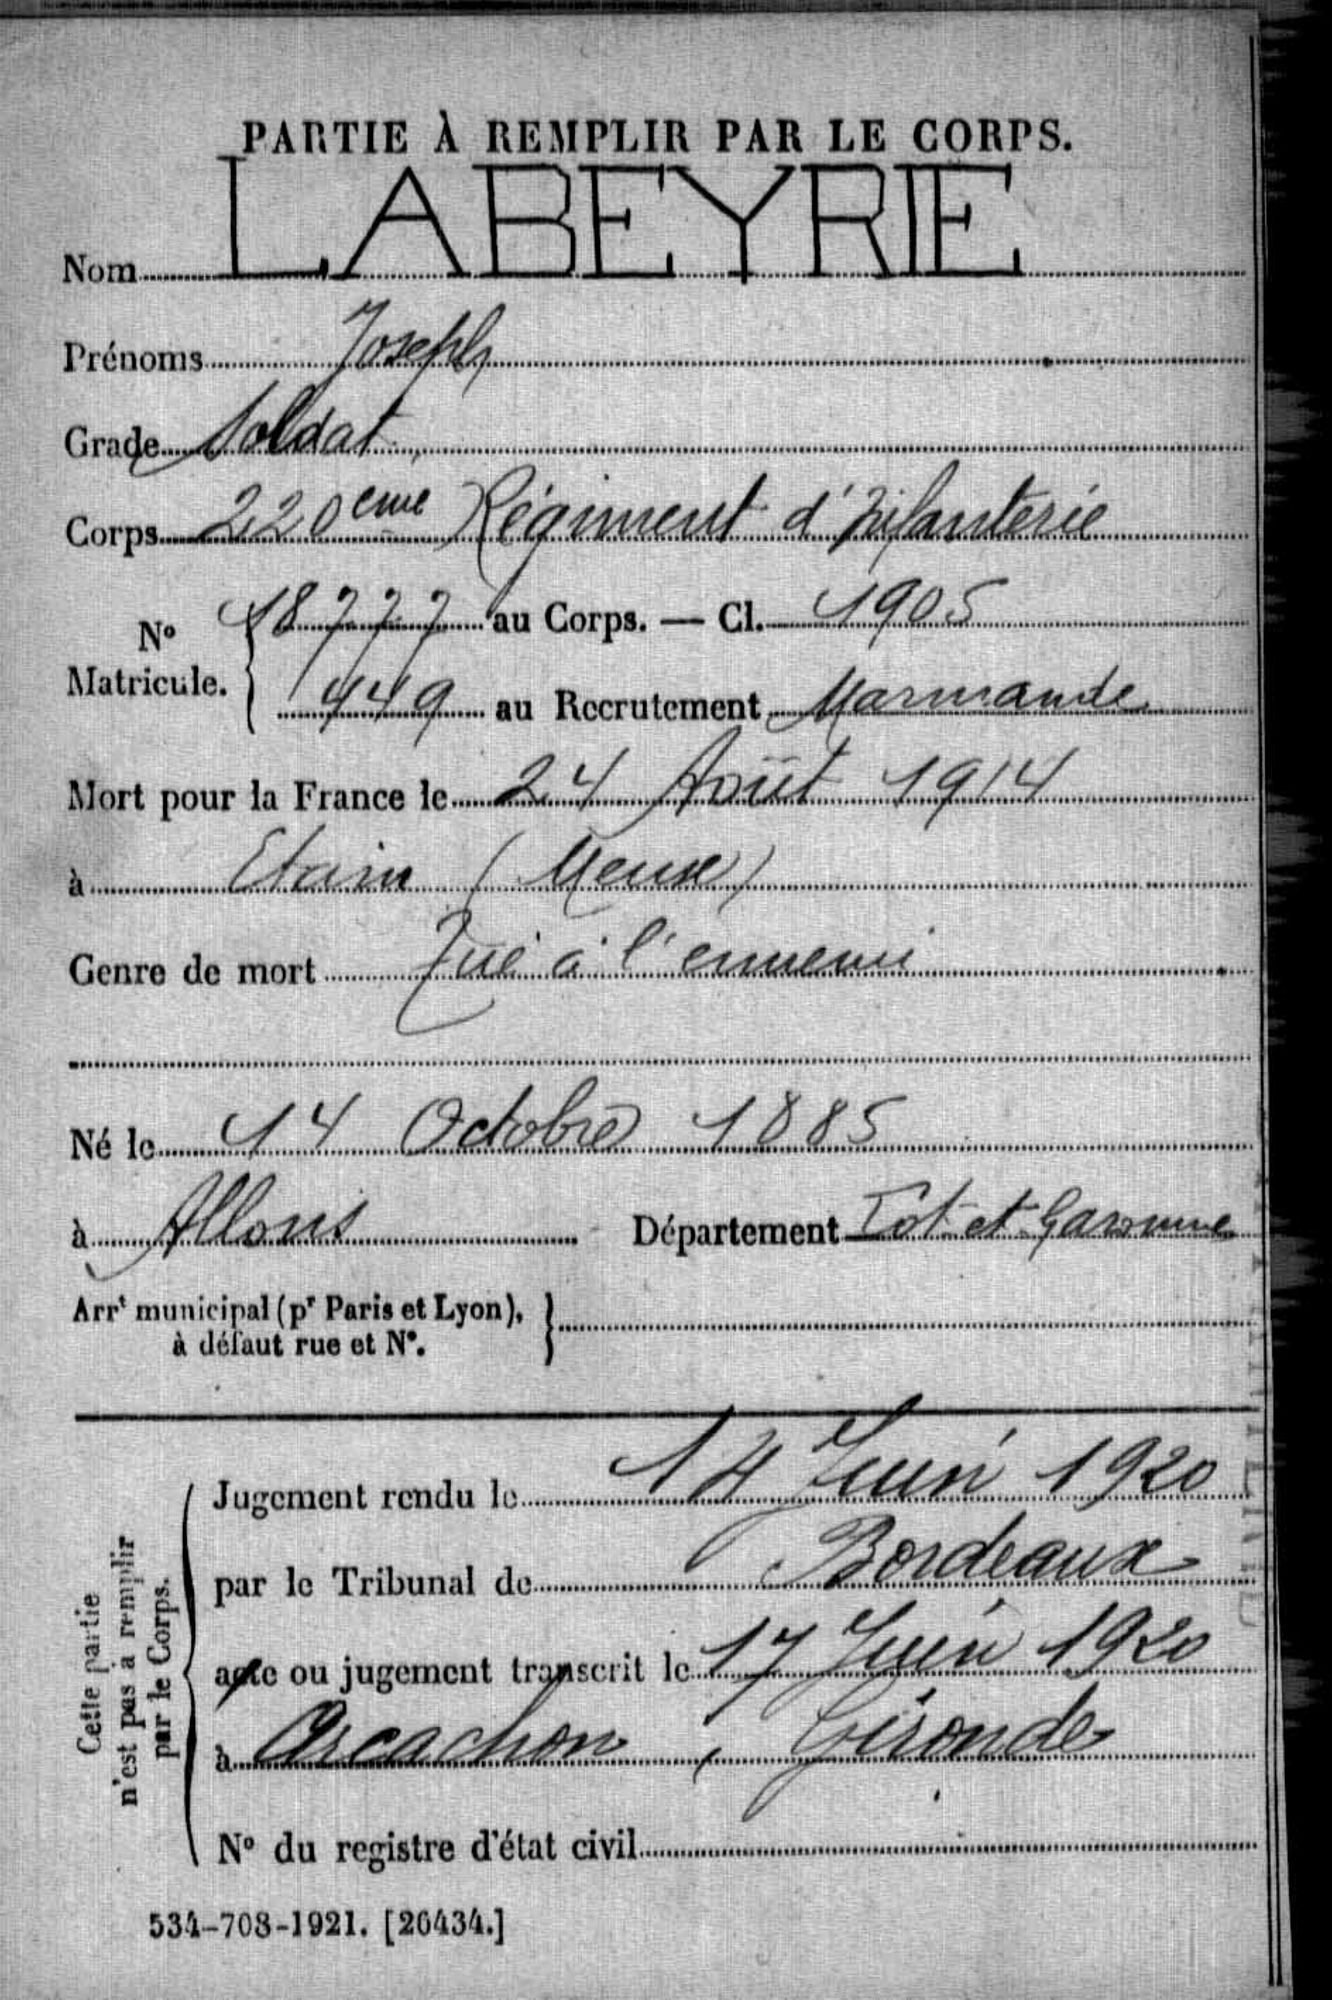 PARTIE À REMPLIR PAR LE CORPS.
Nom LABEYRIE
Prénoms Joseph
Grade Soldat
Corps 220eme Régiment d'Infanterie
N° Matricule. { 18777 au Corps. — Cl. 1905
449 au Recrutement Marmande
Mort pour la France le 24 Août 1914
à Etain (Meuse)
Genre de mort Tué à l'ennemi
Né le 14 Octobre 1885
à Allons Département Lot-et-Garonne
Arrt municipal (pr Paris et Lyon), }
à défaut rue et N°.
Cette partie
n'est pas à remplir
par le Corps.
Jugement rendu le 14 Juin 1920
par le Tribunal de Bordeaux
acte ou jugement transcrit le 17 Juin 1920
à Arcachon, Gironde
N° du registre d'état civil
534-708-1921. [26434.]